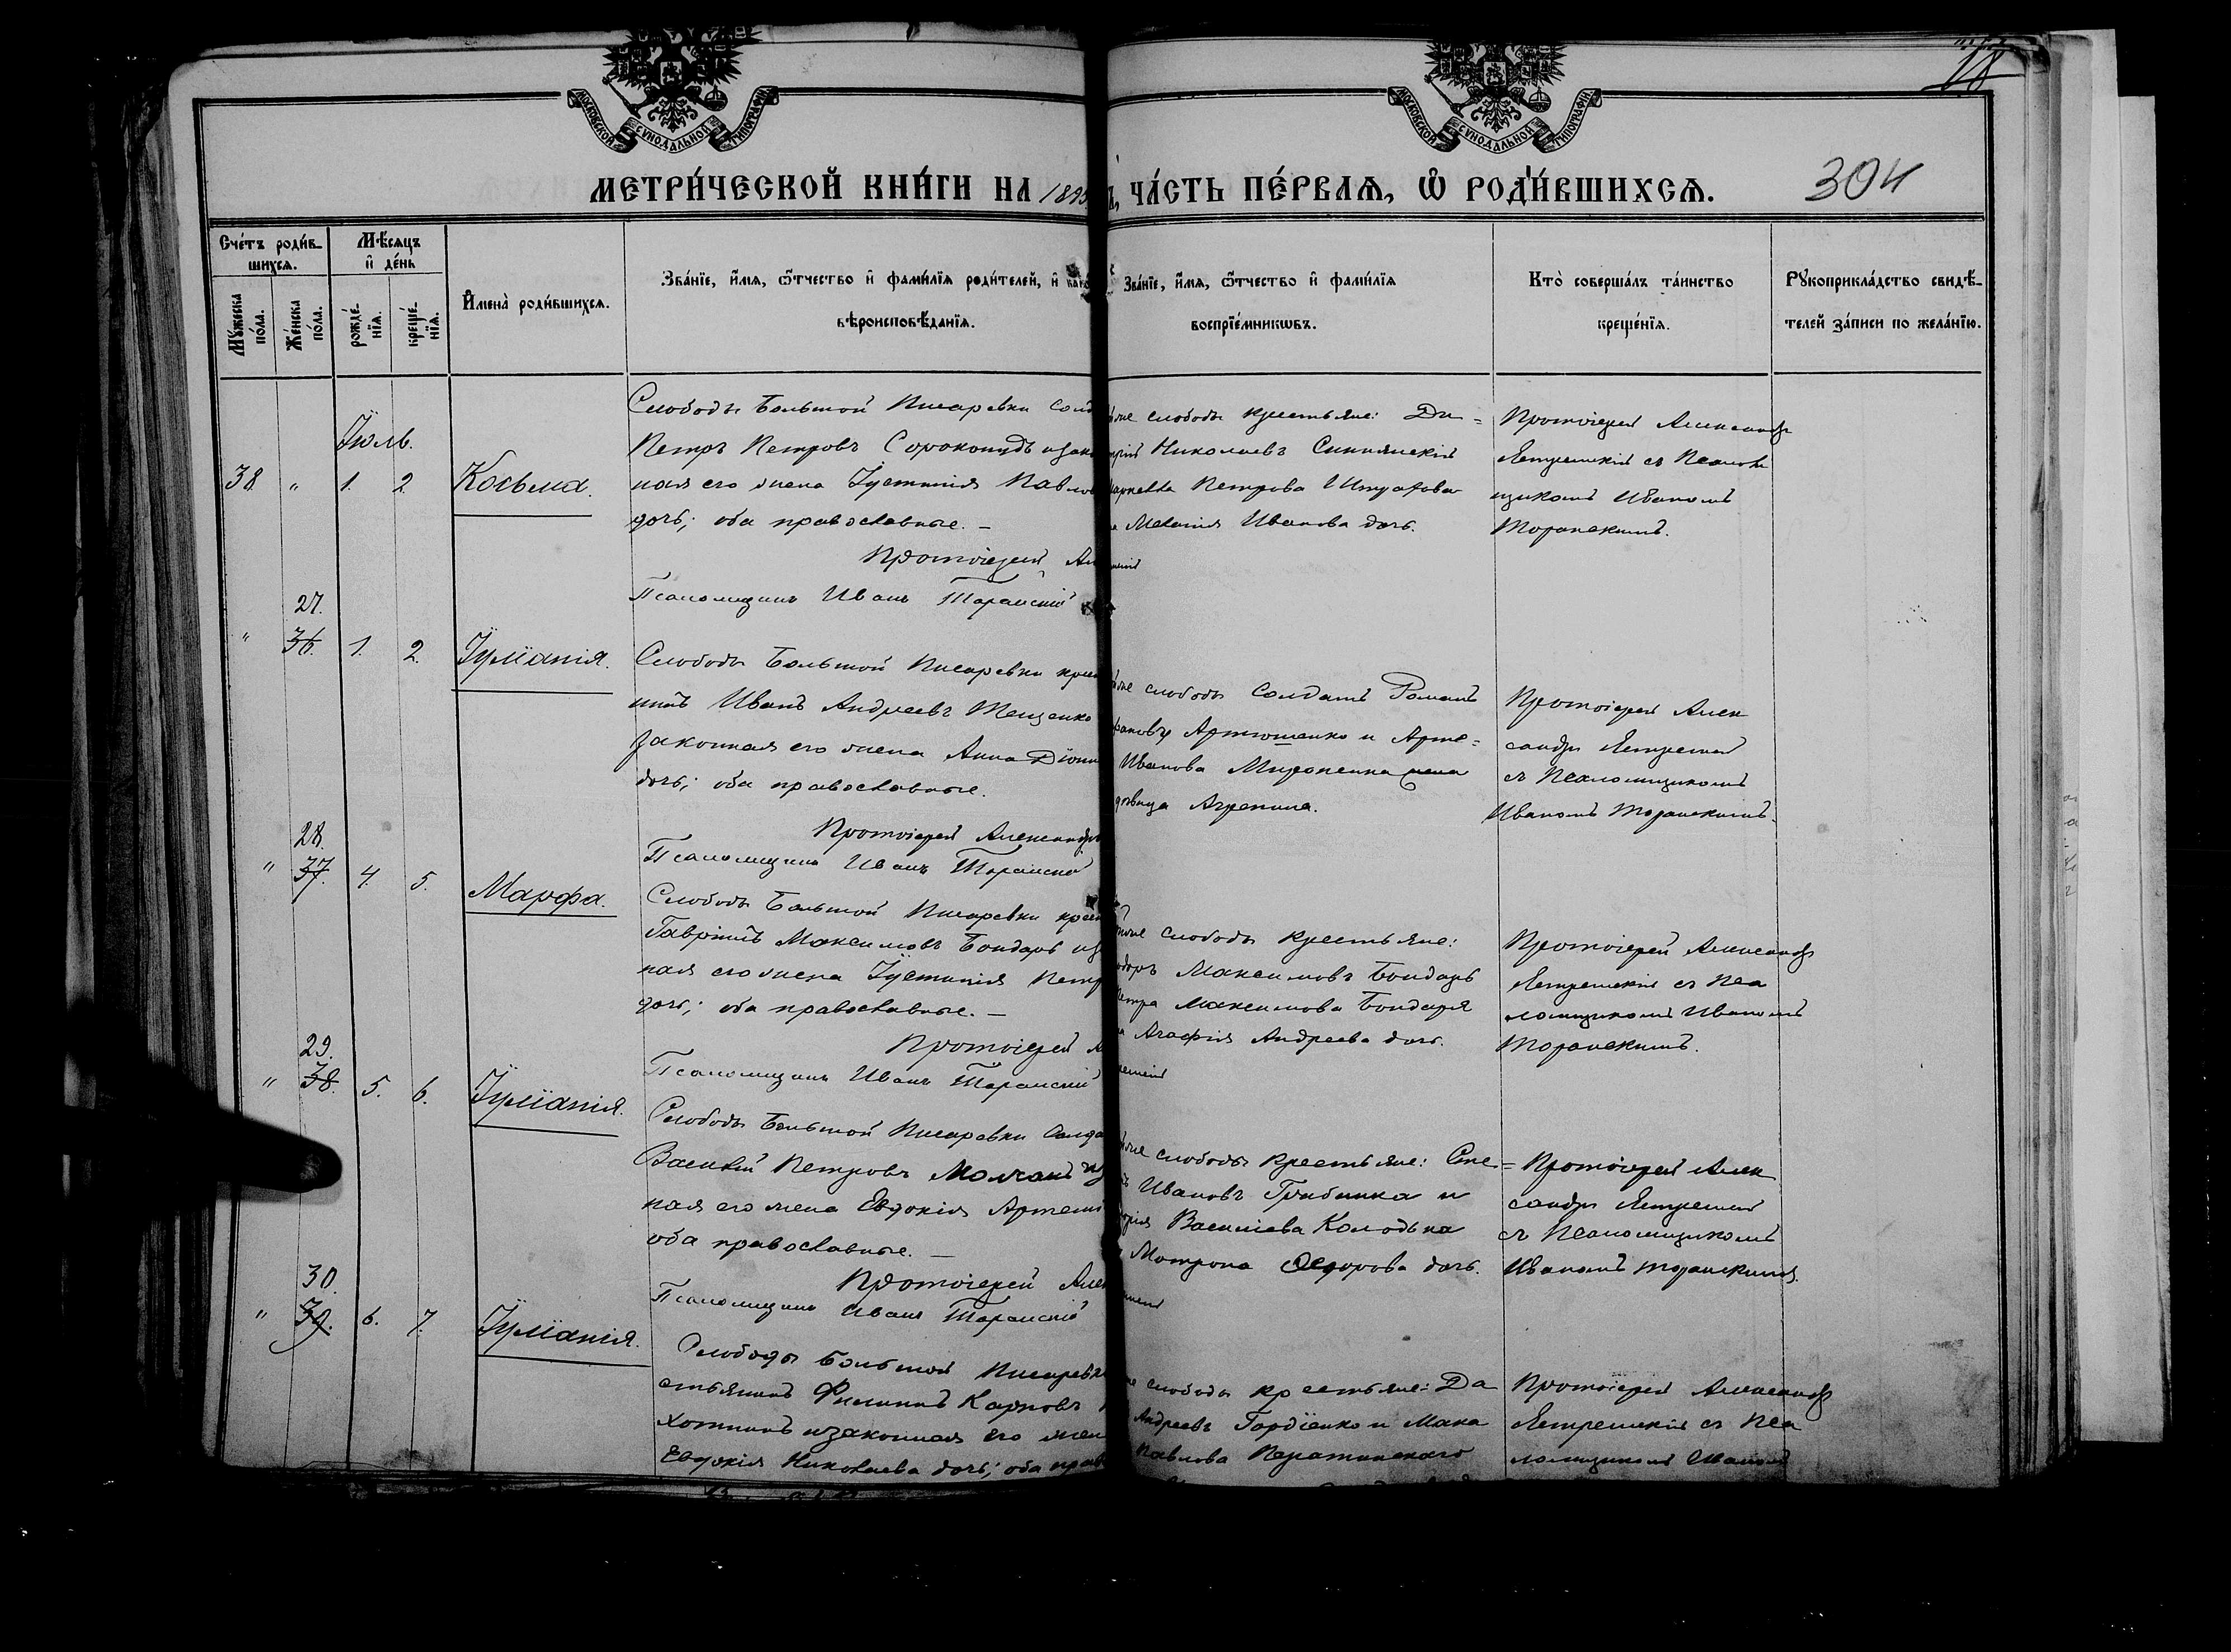 МОСКОВСКОЙ СУНОДАЛЬНОЙ ТИПОГРАФІИ
МОСКОВСКОЙ СУНОДАЛЬНОЙ ТИПОГРАФІИ
18
МЕТРИ́ЧЕСКОЙ КНИ́ГИ НА 1895
ЧА́СТЬ ПЕ́РВАѦ, Ѿ РОДИ́ВШИХСѦ.
304
Сче́тъ роди́в-
шихсѧ.
Мѣ́сѧцъ
и҆ де́нь
Мꙋ́жеска по́ла.
Же́нска по́ла.
рожде́-нїѧ.
креще́-нїѧ.
И҆мена̀ роди́вшихсѧ.
Зва́нїе, и҆́мѧ, ѻ҆́тчество и҆ фами́лїѧ роди́телей, и҆ како
вѣроисповѣ́данїѧ.
Зва́нїе, и҆́мѧ, ѻ҆́тчество и҆ фами́лїѧ
воспрїе́мникѡвъ.
Кто̀ соверша́лъ та́инство
креще́нїѧ.
Рꙋкоприкла́дство свидѣ́-
телей за́писи по жела́нїю.
Іюль.
38. " 1. 2. Косьма.
Слободы Большой Писаревки солд
Петръ Петровъ Сорокопудъ изако
ная его жена Іустинія Павлов
дочь; оба православные. –
Протоіерей Ал
Псаломщикъ Иванъ Таранскій
слободы крестьяне: Ди=
Николаевъ Синянскій
Петрова
Меланія Иванова дочь.
Протоіерей Александръ
Ястремскій съ Псалом
щикомъ Иваномъ
Таранскимъ.
27.
" 36. 1. 2. Іуліанія.
Слободы Большой Писаревки крес
нинъ Иванъ Андреевъ Тещенко
законная его жена Анна Діони
дочь; оба православные.
Протоіерей Александръ
Псаломщикъ Иванъ Таранскій
слободы Солдатъ Романъ
Артюшенко и Арте=
Иванова Мироненка жена
вдовица Агрепина.
Протоіерей Алек
сандръ Ястремскій
съ Псаломщикомъ
Иваномъ Таранскимъ.
28.
" 37. 4. 5. Марфа.
Слободы Большой Писаревки крест
Гавріилъ Максимовъ Бондарь из
ная его жена Іустинія Петр
дочь; оба православные. –
Протоіерей А
Псаломщикъ Иванъ Таранскій
слободы крестьяне:
Максимовъ Бондарь
Петра Максимова Бондаря
Агафія Андреева дочь.
Протоіерей Александръ
Ястремскій съ Пса
ломщикомъ Иваномъ
Таранскимъ.
29.
" 38. 5. 6. Іуліанія.
Слободы Большой Писаревки Солда
Василій Петровъ Молчанъ из
ная его жена Евдокія Артеми
оба православные. –
Протоіерей Алек
Псаломщикъ Иванъ Таранскій
слободы крестьяне: Сте=
Ивановъ Грибинка и
Василіева Колодька
Мотрона Ѳедорова дочь.
Протоіерей Алек
сандръ Ястремскій
съ Псаломщикомъ
Иваномъ Таранскимъ.
30.
" 39. 6. 7. Іуліанія.
Слободы Большой Писаревк
стьянинъ Филиппъ Карповъ
хотникъ изаконная его жен
Евдокія Николаева дочь; оба прав
слободы крестьяне: Да
Андреевъ Гордіенко и Мака
Павлова
Протоіерей Александръ
Ястремскій съ Пса
ломщикомъ Иваном